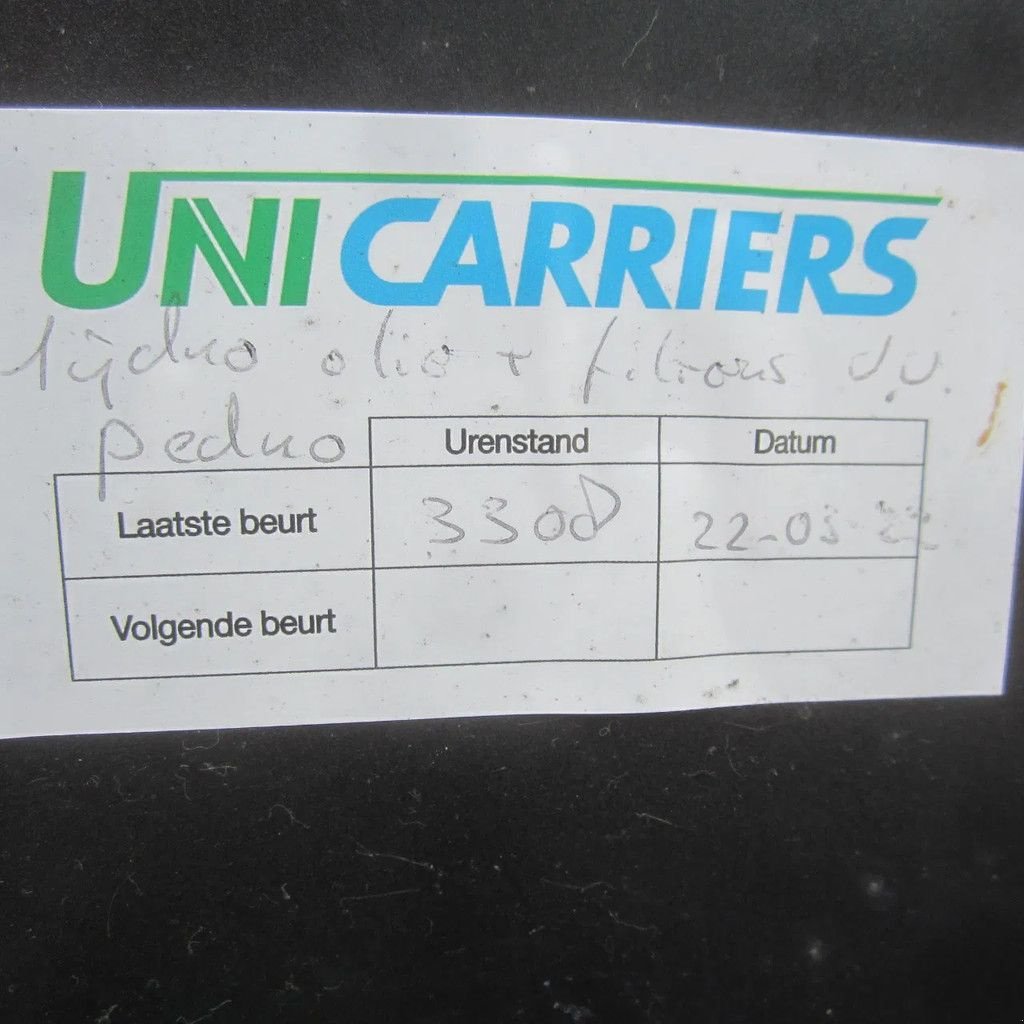 UNICARRIERS
hydro olio + filters v.v.
pedro
Urenstand Datum
Laatste beurt 3308 22-03-22
Volgende beurt